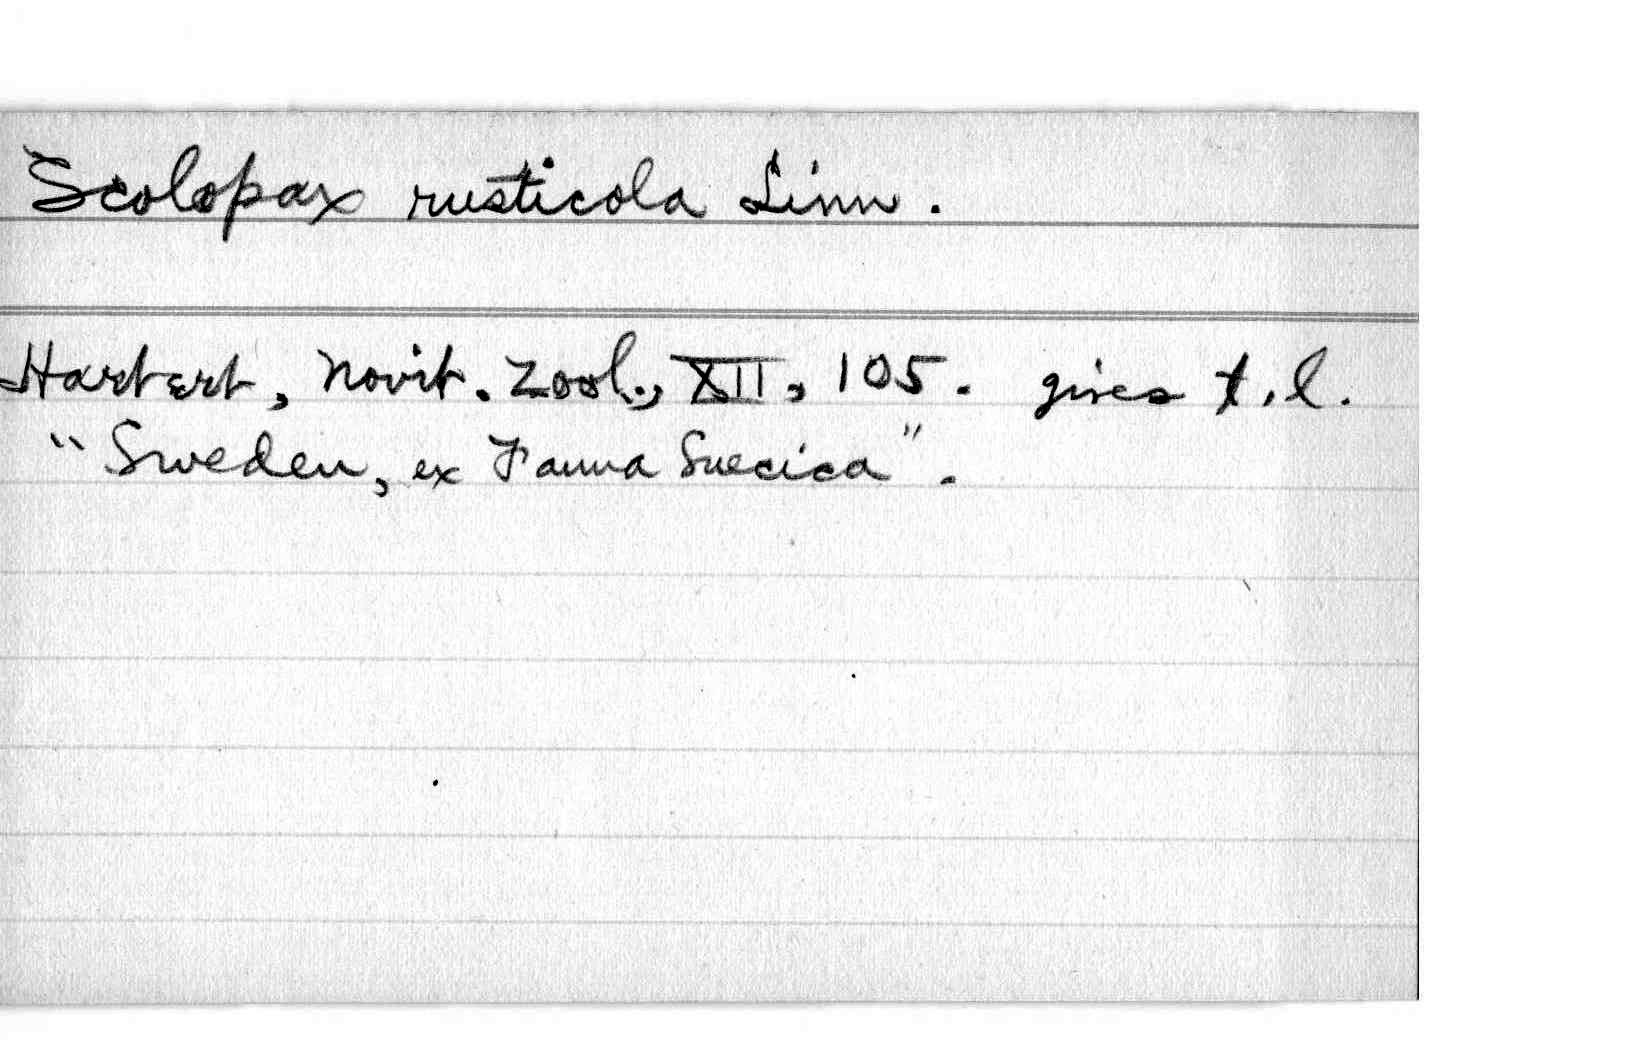 Scolopax rusticola Linn.
Hartert, Novit. Zool., XII, 105. gives t.l.
"Sweden, ex Fauna Suecica".